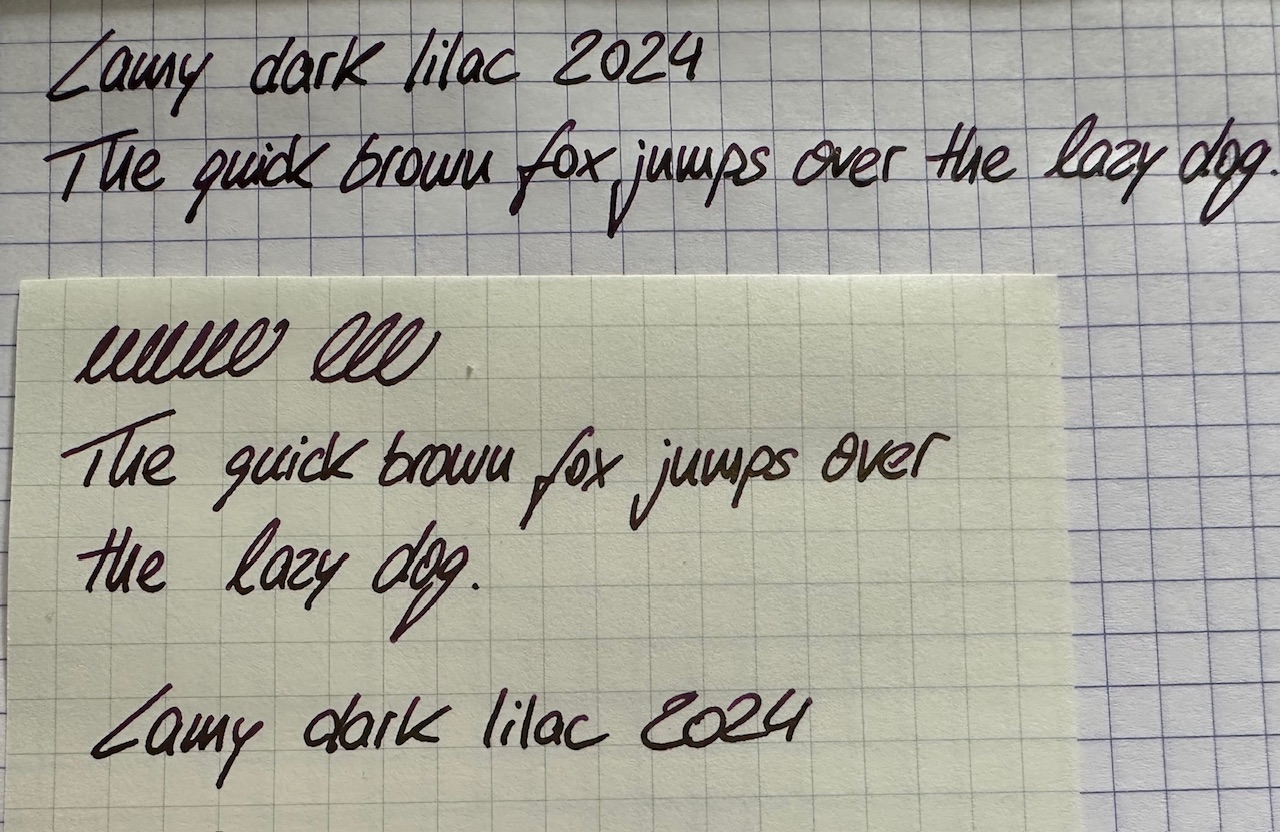 Lamy dark lilac 2024
The quick brown fox jumps over the lazy dog.
The quick brown fox jumps over
the lazy dog.
Lamy dark lilac 2024